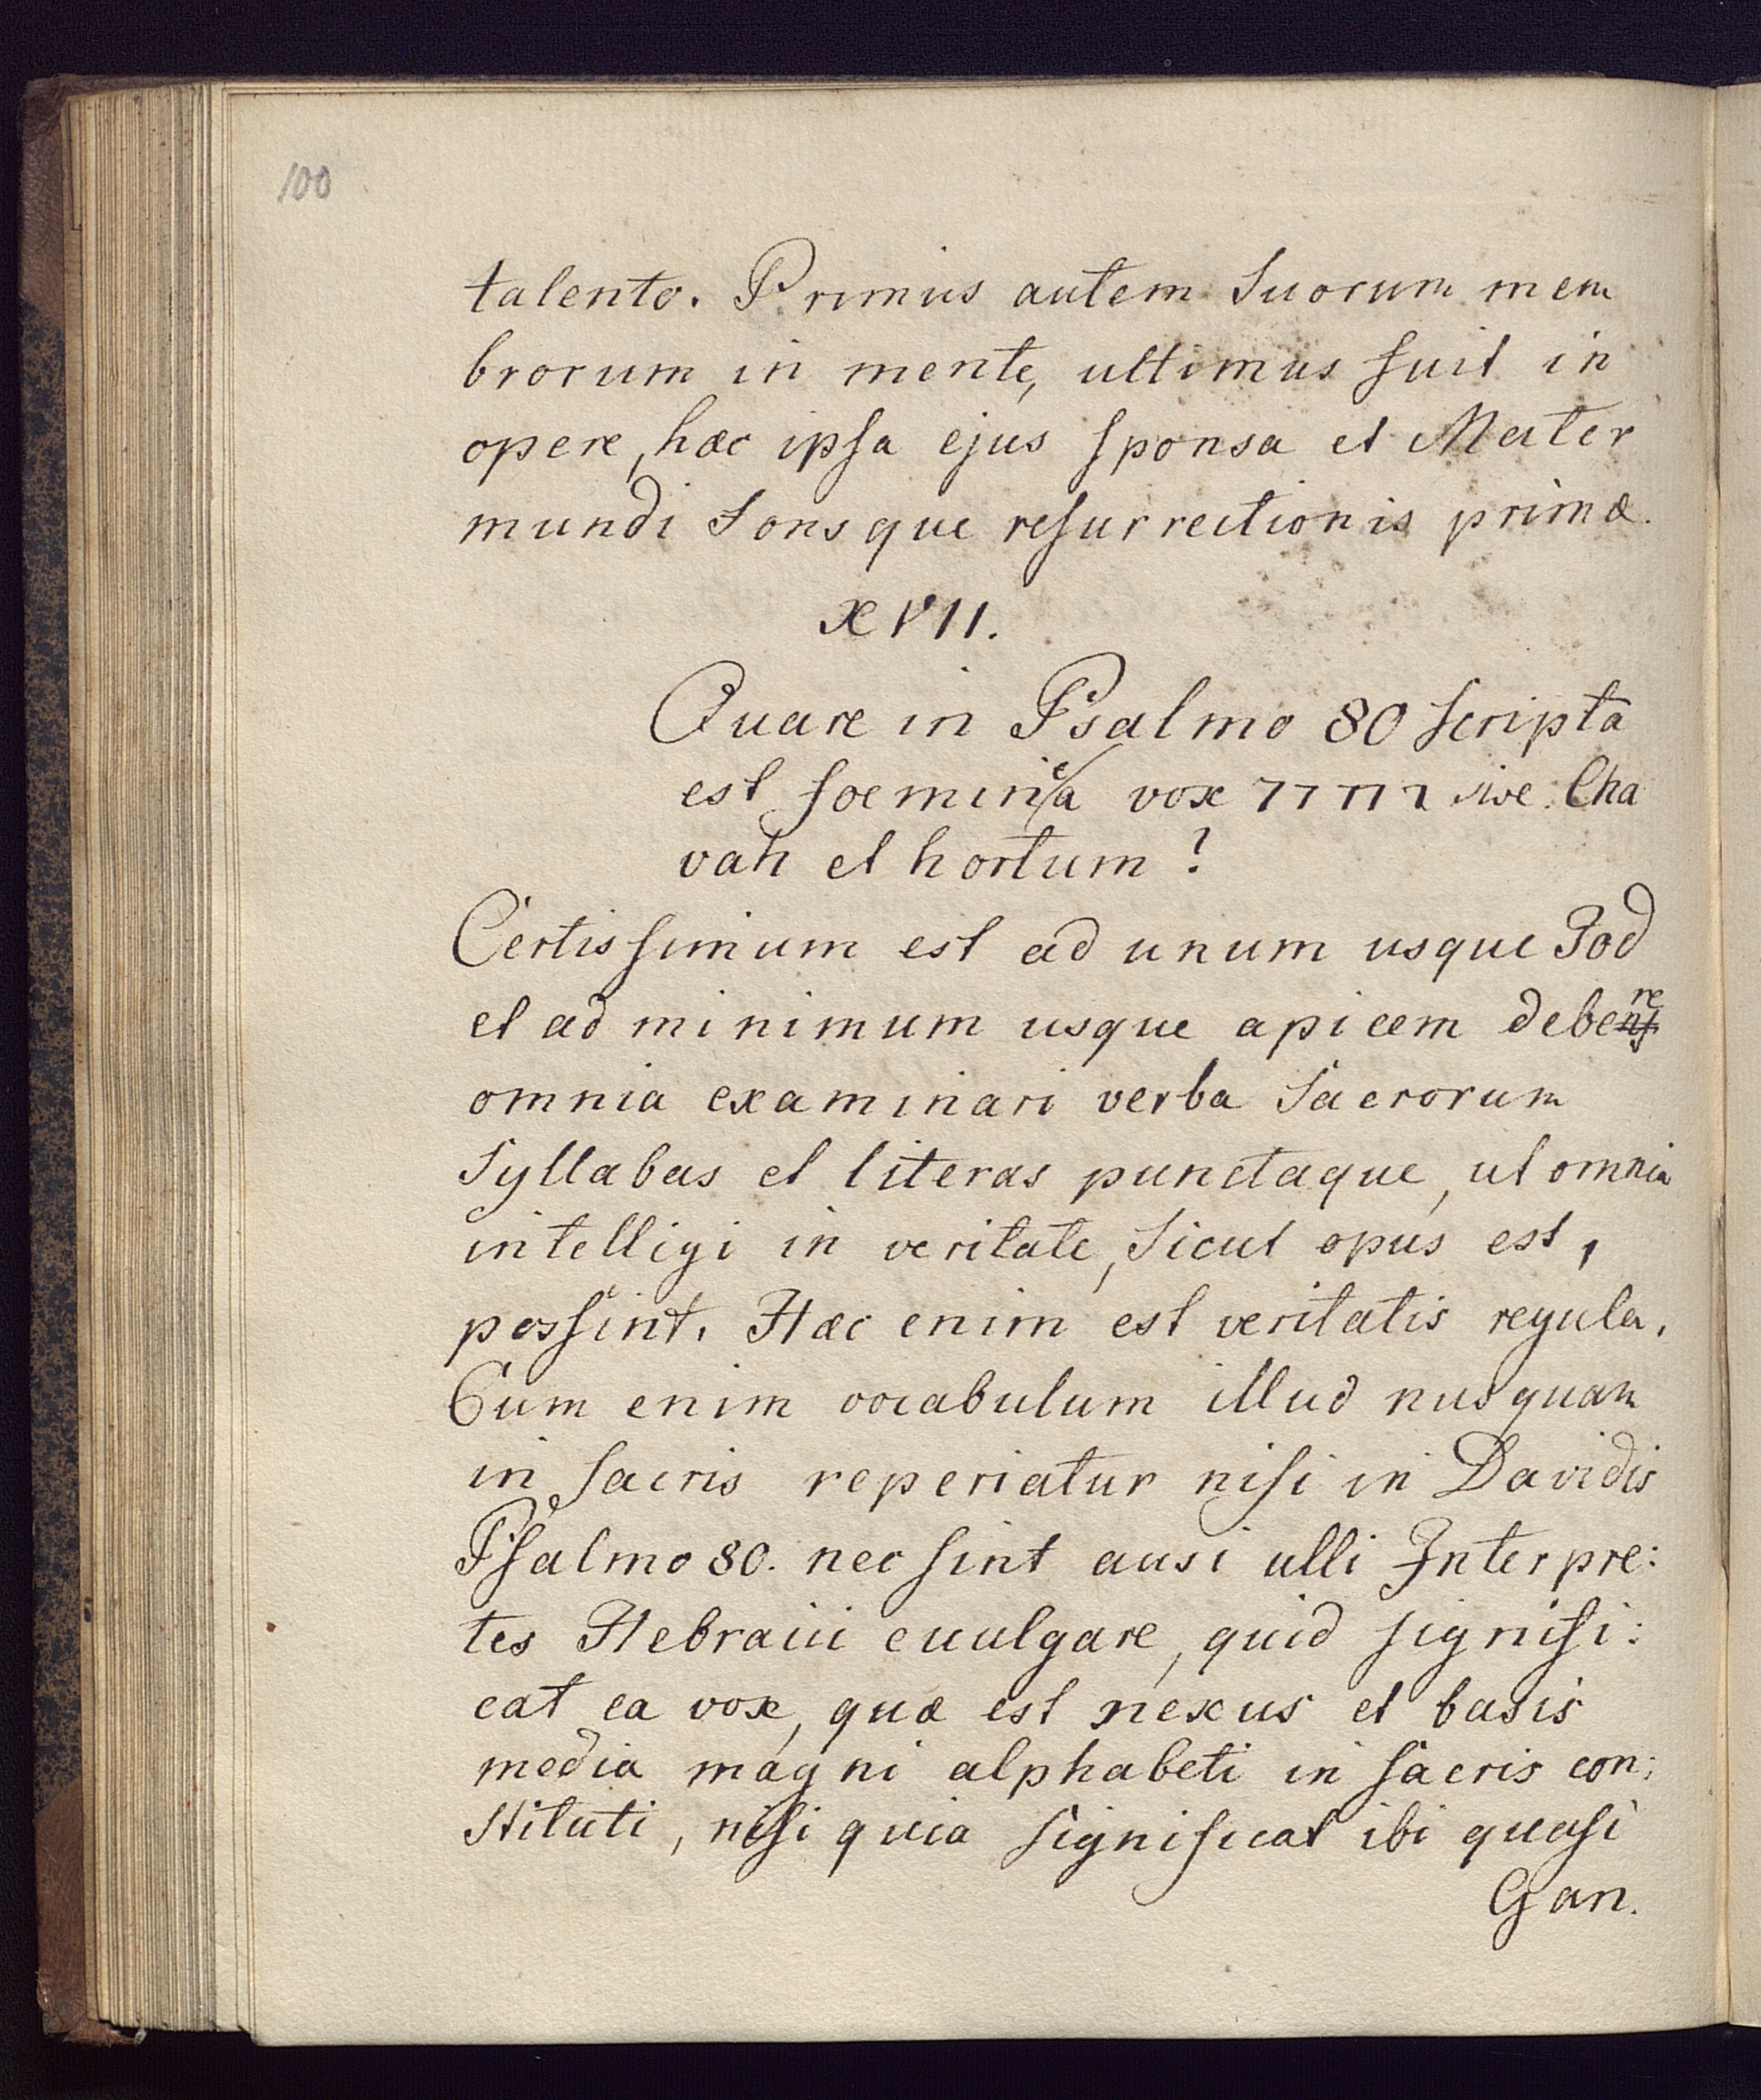 100
talento. Primus autem Suorum mem
brorum in mente, ultimus fuit in
opere, hæc ipsa ejus sponsa et Mater
mundi Fonsque resurrectionis primæ.
XVII.
Quare in Psalmo 80 scripta
est foeminea vox sive Cha
vah et hortum?
Certissimum est ad unum usque Jod
et ad minimum usque apicem debere
omnia examinari verba Sacrorum
Syllabas et literas punctaque, ut omnia
intelligi in veritate, Sicut opus est,
possint. Hæc enim est veritatis regula.
Cum enim vocabulum illud nusquam
in sacris reperiatur nisi in Davidis
Psalmo 80. nec sint ausi ulli Interpre:
tes Hebraici euulgare, quid signifi:
cat ea vox, quæ est nexus et basis
media magni alphabeti in sacris con:
stituti, nisi quia significat ibi quasi
Gan.